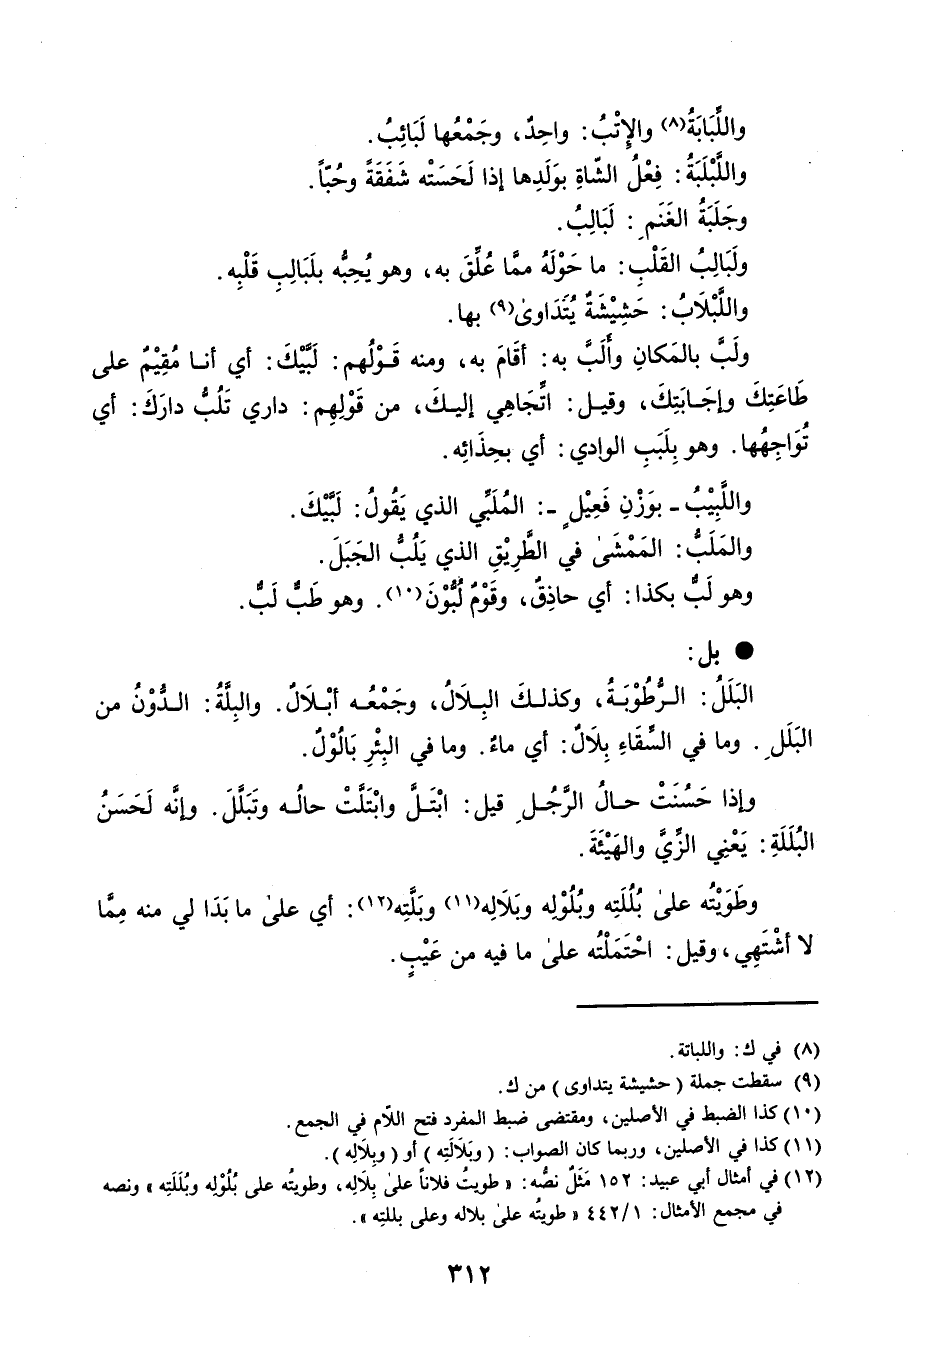 واللَّبَابَةُ(٨) والإِتْبُ: واحِدٌ، وجَمْعُها لَبَائِبُ.
واللَّبْلَبَةُ: فِعْلُ الشّاةِ بوَلَدِها إذا لَحَسَتْه شَفَقَةً وحُبّاً.
وجَلَبَةُ الغَنَمِ: لَبَالِبُ.
ولَبَالِبُ القَلْبِ: ما حَوْلَهُ ممَّا عُلِّقَ به، وهو يُحِبُّه بلَبَالِبِ قَلْبِه.
واللَّبْلَابُ: حَشِيْشَةٌ يُتَدَاوىٰ(٩) بها.
ولَبَّ بالمَكانِ وأَلَبَّ به: أقَامَ به، ومنه قَوْلُهم: لَبَّيْكَ: أي أنا مُقِيْمٌ على
طَاعَتِكَ وإجَابَتِكَ، وقيل: اتِّجَاهِي إليكَ، من قَوْلِهِم: داري تَلُبُّ دارَكَ: أي
تُوَاجِهُها. وهو بِلَبَبِ الوادي: أي بحِذَائِه.
واللَّبِيْبُ ـ بوَزْنِ فَعِيْلٍ ـ: المُلَبِّي الذي يَقُولُ: لَبَّيْكَ.
والمَلَبُّ: المَمْشَىٰ في الطَّرِيْقِ الذي يَلُبُّ الجَبَلَ.
وهو لَبٌّ بكذا: أي حاذِقٌ، وقَوْمٌ لُبُّوْنَ(١٠). وهو طَبٌّ لَبٌّ.
● بل:
البَلَلُ: الرُّطُوْبَةُ، وكذلكَ البِلَالُ، وجَمْعُه أبْلَالٌ. والبِلَّةُ: الدُّوْنُ من
البَلَلِ. وما في السِّقَاءِ بِلَالٌ: أي ماءٌ. وما في البِئْرِ بَالُوْلٌ.
وإذا حَسُنَتْ حالُ الرَّجُلِ قيل: ابْتَلَّ وابْتَلَّتْ حالُه وتَبَلَّلَ. وإنَّه لَحَسَنُ
البُلَلَةِ: يَعْنِي الزِّيَّ والهَيْئَةَ.
وطَوَيْتُه علىٰ بُلُلَتِه وبُلُوْلِه وبَلَالِه(١١) وبَلَّتِه(١٢): أي علىٰ ما بَدَا لي منه مِمَّا
لا أشْتَهِي، وقيل: احْتَمَلْتُه علىٰ ما فيه من عَيْبٍ.
(٨) في ك: واللباتة.
(٩) سقطت جملة (حشيشة يتداوى) من ك.
(١٠) كذا الضبط في الأصلين، ومقتضى ضبط المفرد فتح اللّام في الجمع.
(١١) كذا في الأصلين، وربما كان الصواب: (وبَلَالَتِه) أو (وبِلَالِه).
(١٢) في أمثال أبي عبيد: ١٥٢ مَثَلٌ نصُّه: «طويتُ فلاناً علىٰ بِلَالِه، وطويتُه على بُلُوْلِه وبُلَلَتِه» ونصه
في مجمع الأمثال: ٤٤٢/١ «طويتُه علىٰ بلاله وعلى بللتِه».
٣١٢